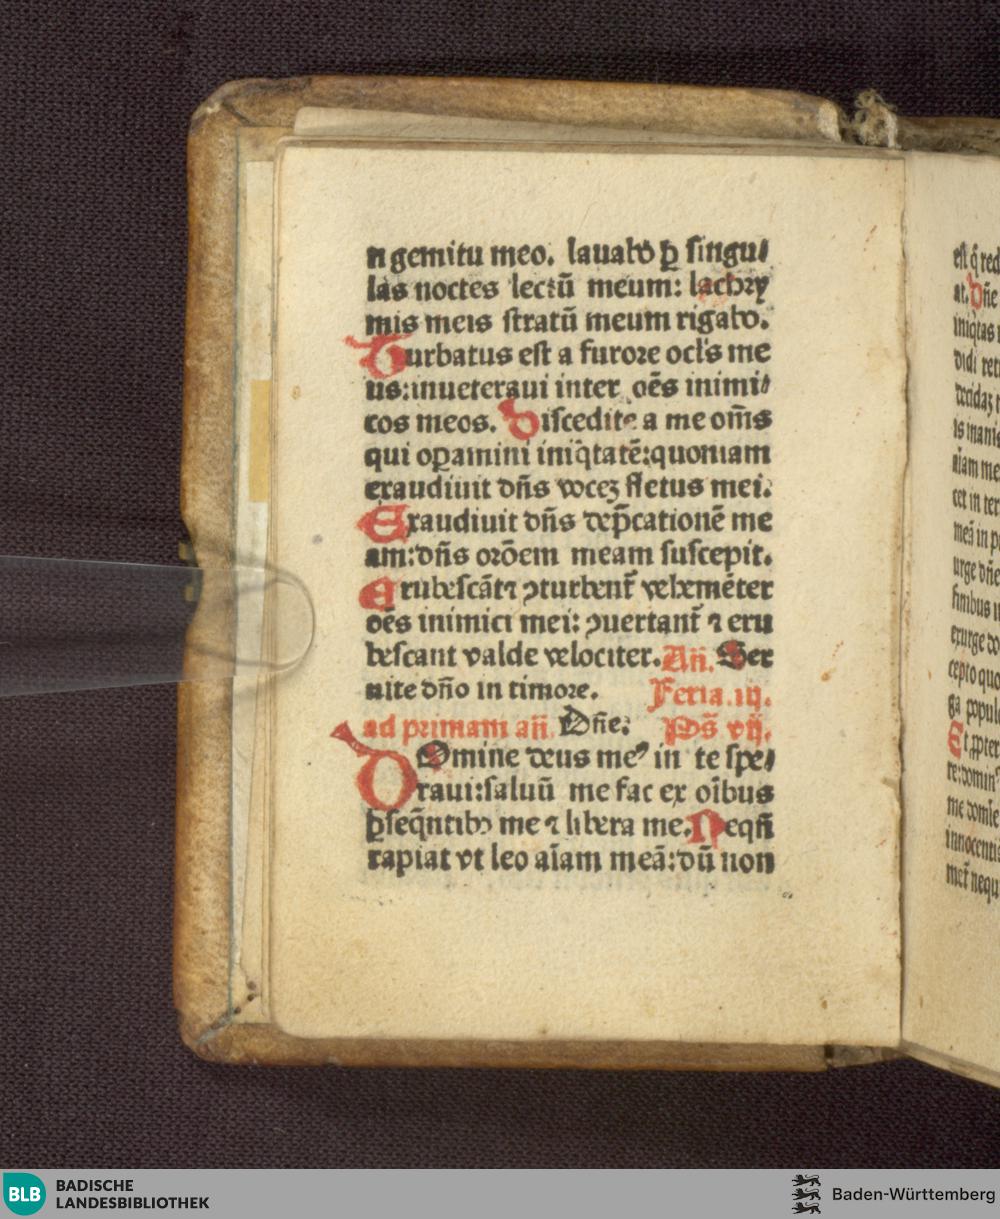 n gemitu meo. lauabo ꝑ singu/
las noctes lectū meum: lachry
mis meis stratū meum rigabo.
Turbatus est a furore ocĺs me
us: inueteraui inter oēs inimi/
cos meos. Discedite a me om̄s
qui oꝑamini iniq̇tatē: quoniam
exaudiuit dn̄s vocez fletus mei.
Exaudiuit dn̄s dep̄cationē me
am: dn̄s orōem meam suscepit.
Erubescāt⁊ ꝯturbent᷑ vehemēter
oēs inimici mei: ꝯuertant᷑ ⁊ eru
bescant valde velociter. An̄. Ser
uite dn̄o in timore. Feria. iij.
ad primam an̄. Dn̄e. Ps̄ vij.
DOmine deus meꝰ in te spe/
raui: saluū me fac ex oībus
ꝑseq̄ntibꝫ me ⁊ libera me. Neqn̄
rapiat vt leo aīam meā: dū non
est q̇ red
at. Dn̄e
iniq̇tas
didi ret
decidaz
is inanis
aīam me
cet in ter
meā in p
urge dn̄e
finibus
exurge do
cepto quo
ga popul
Et ꝓpter
re: dominꝰ
me domīe
innocenti
met᷑ nequ
BLB BADISCHE
LANDESBIBLIOTHEK
Baden-Württemberg